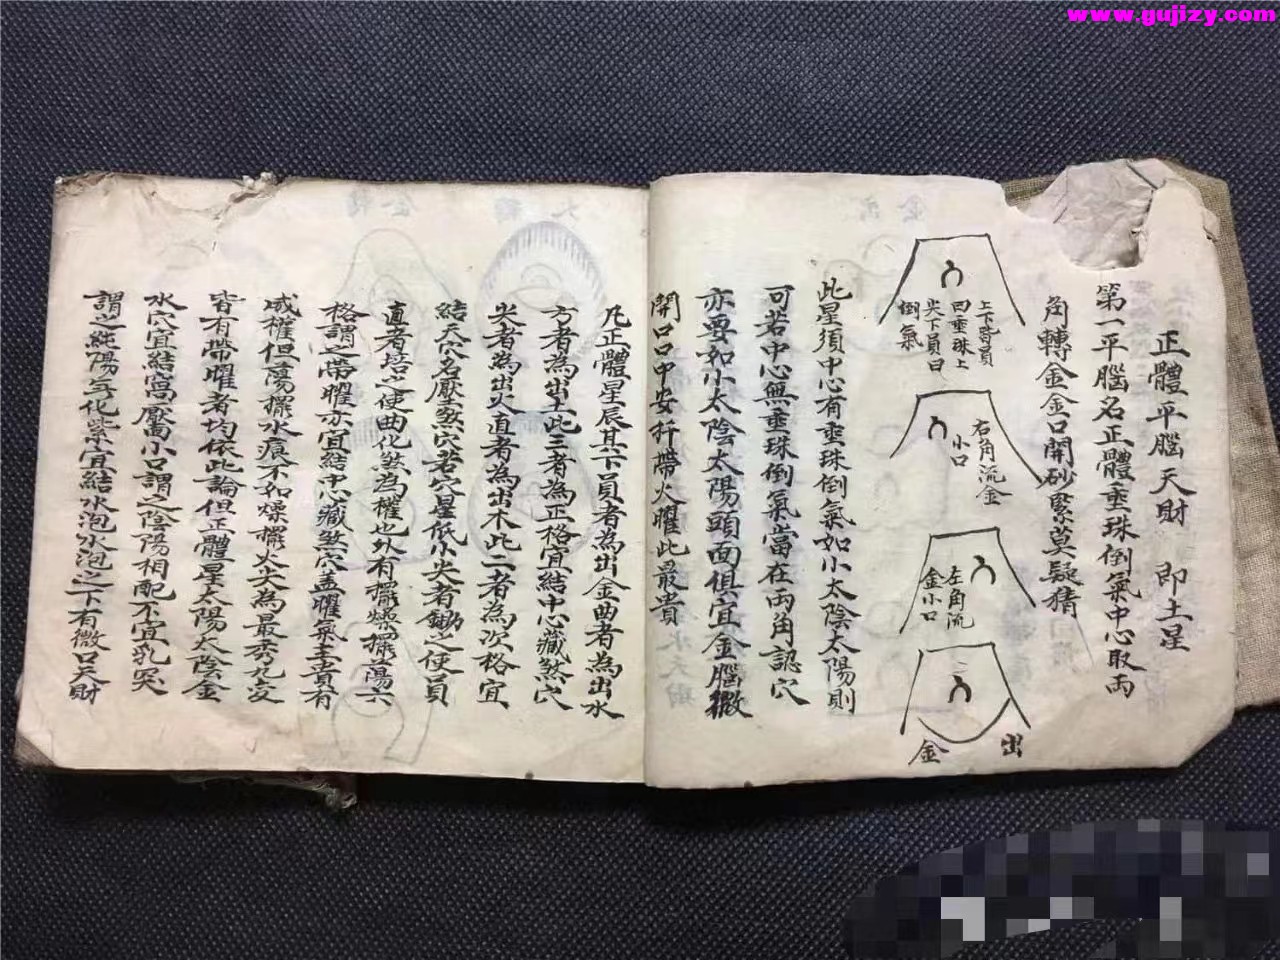 www.gujizy.com
正體平腦天財　即土星
第一平腦名正體垂珠倒氣中心取両
角轉金金口開砂累莫疑猜
上下皆員
曰垂珠上
尖下員曰
倒氣
右角流金
小口
左角流
金小口
出
金
此星須中心有垂珠倒氣如小太陰太陽則
可若中心無垂珠倒氣當在両角認穴
亦要如小太陰太陽頭面俱宜金腦微
開口口中安扦帶火曜此最貴
凡正體星辰其下員者為出金曲者為出水
方者為出土此三者為正格宜結中心藏煞穴
尖者為出火直者為出木此二者為次格宜
結天穴名壓煞穴若穴星低小尖者鋤之使員
直者培之使曲化煞為權也外有擺燥擺蕩六
格謂之帶曜亦宜結中心藏煞穴盖曜氣主貴有
威權但蕩擺水痕不如燥擺火尖為最秀九変
皆有帶曜者均依此論但正體星太陽太陰金
水穴宜結窩靨小口謂之陰陽相配不宜乳突
謂之純陽無化紫宜結水泡水泡之下有微口天財